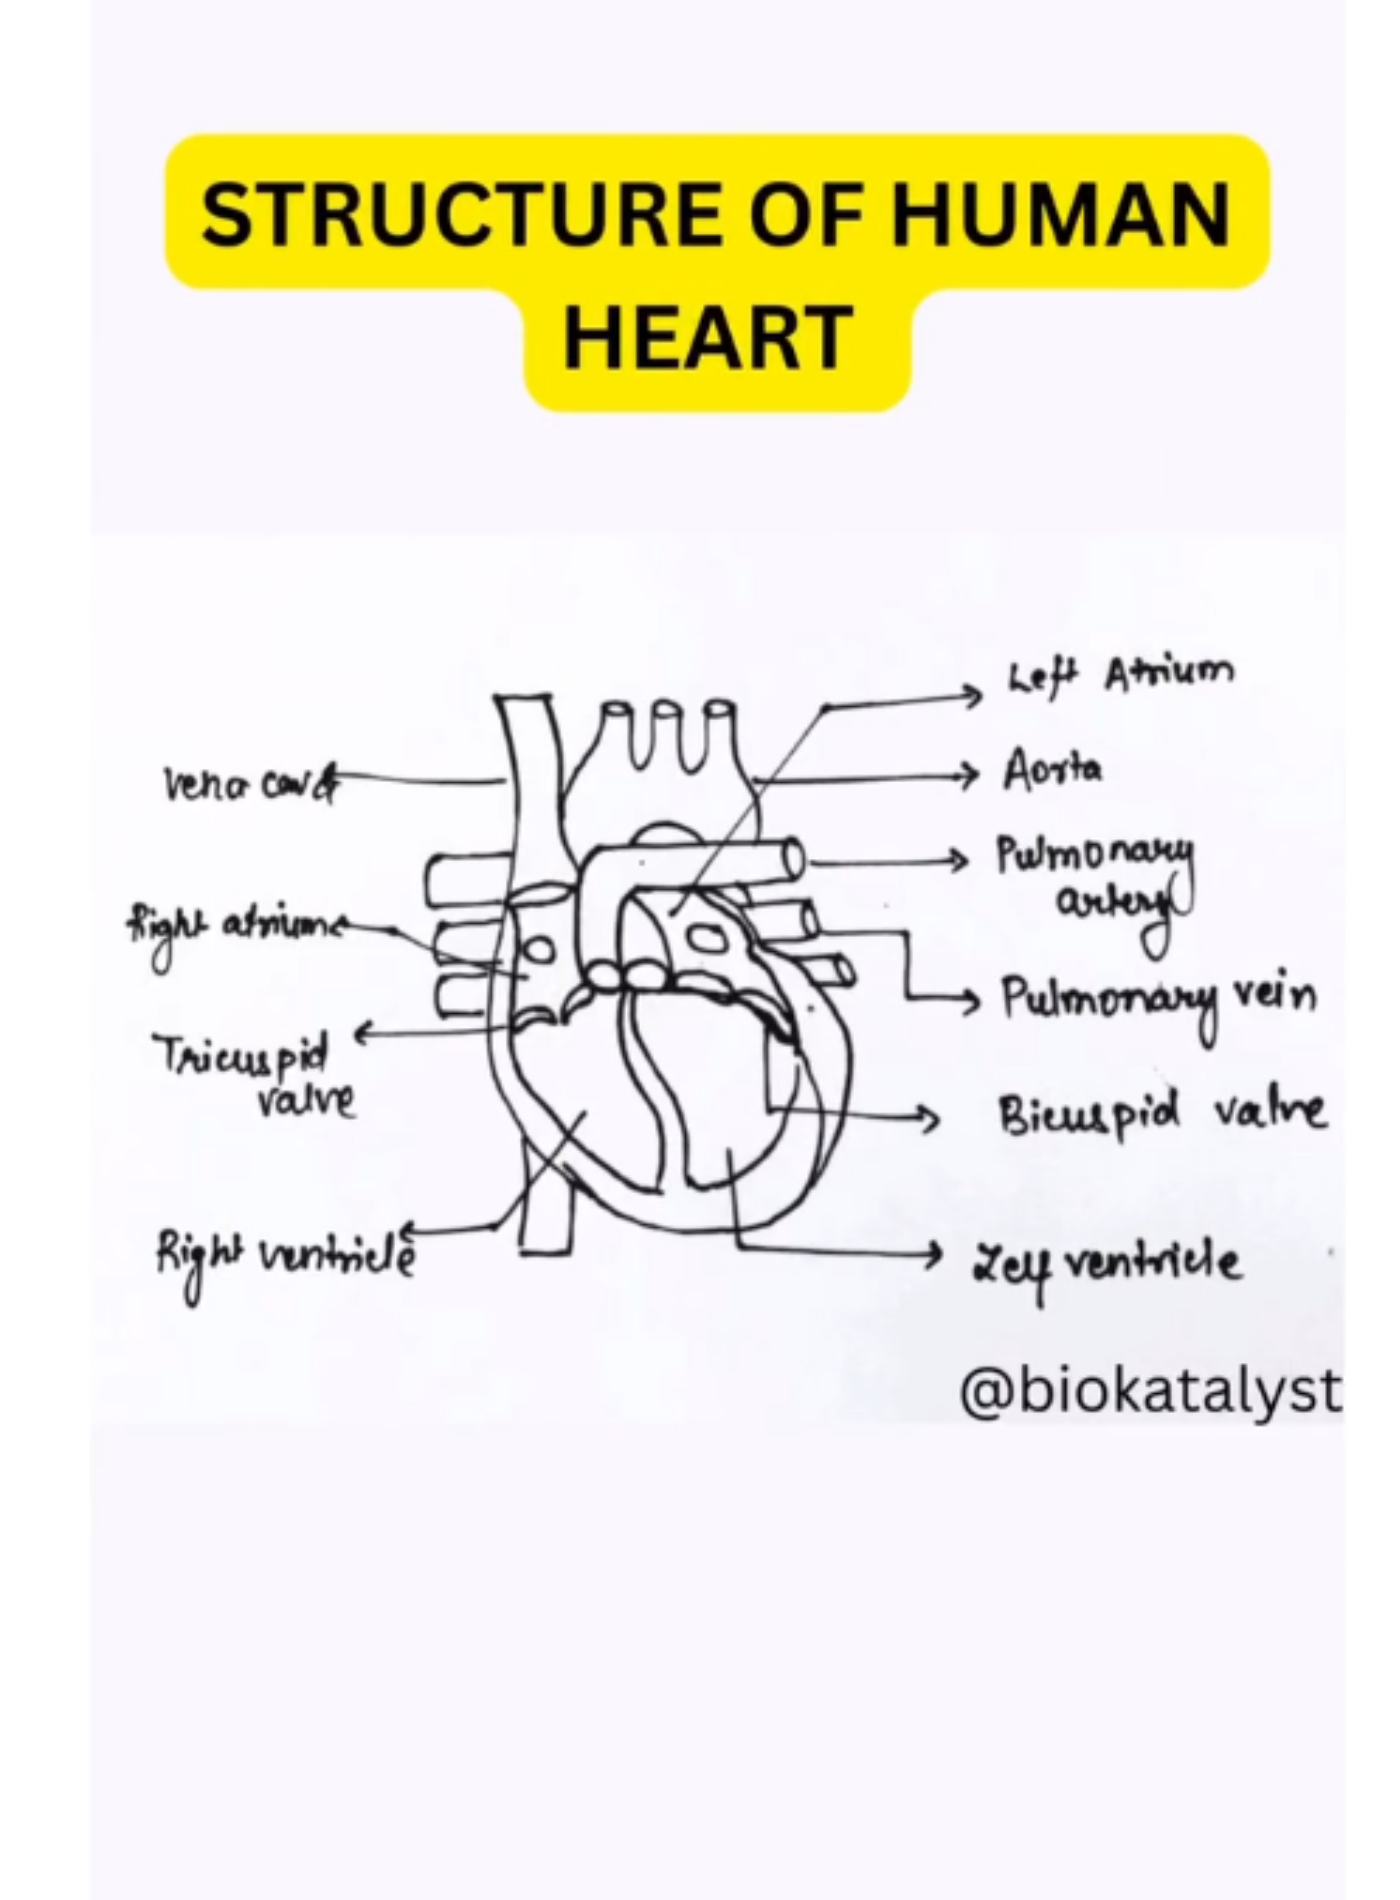 STRUCTURE OF HUMAN
HEART
Left Atrium
Vena cava
Aorta
Pulmonary
artery
Right atrium
Pulmonary vein
Tricuspid
valve
Bicuspid valve
Right ventricle
Left ventricle
@biokatalyst